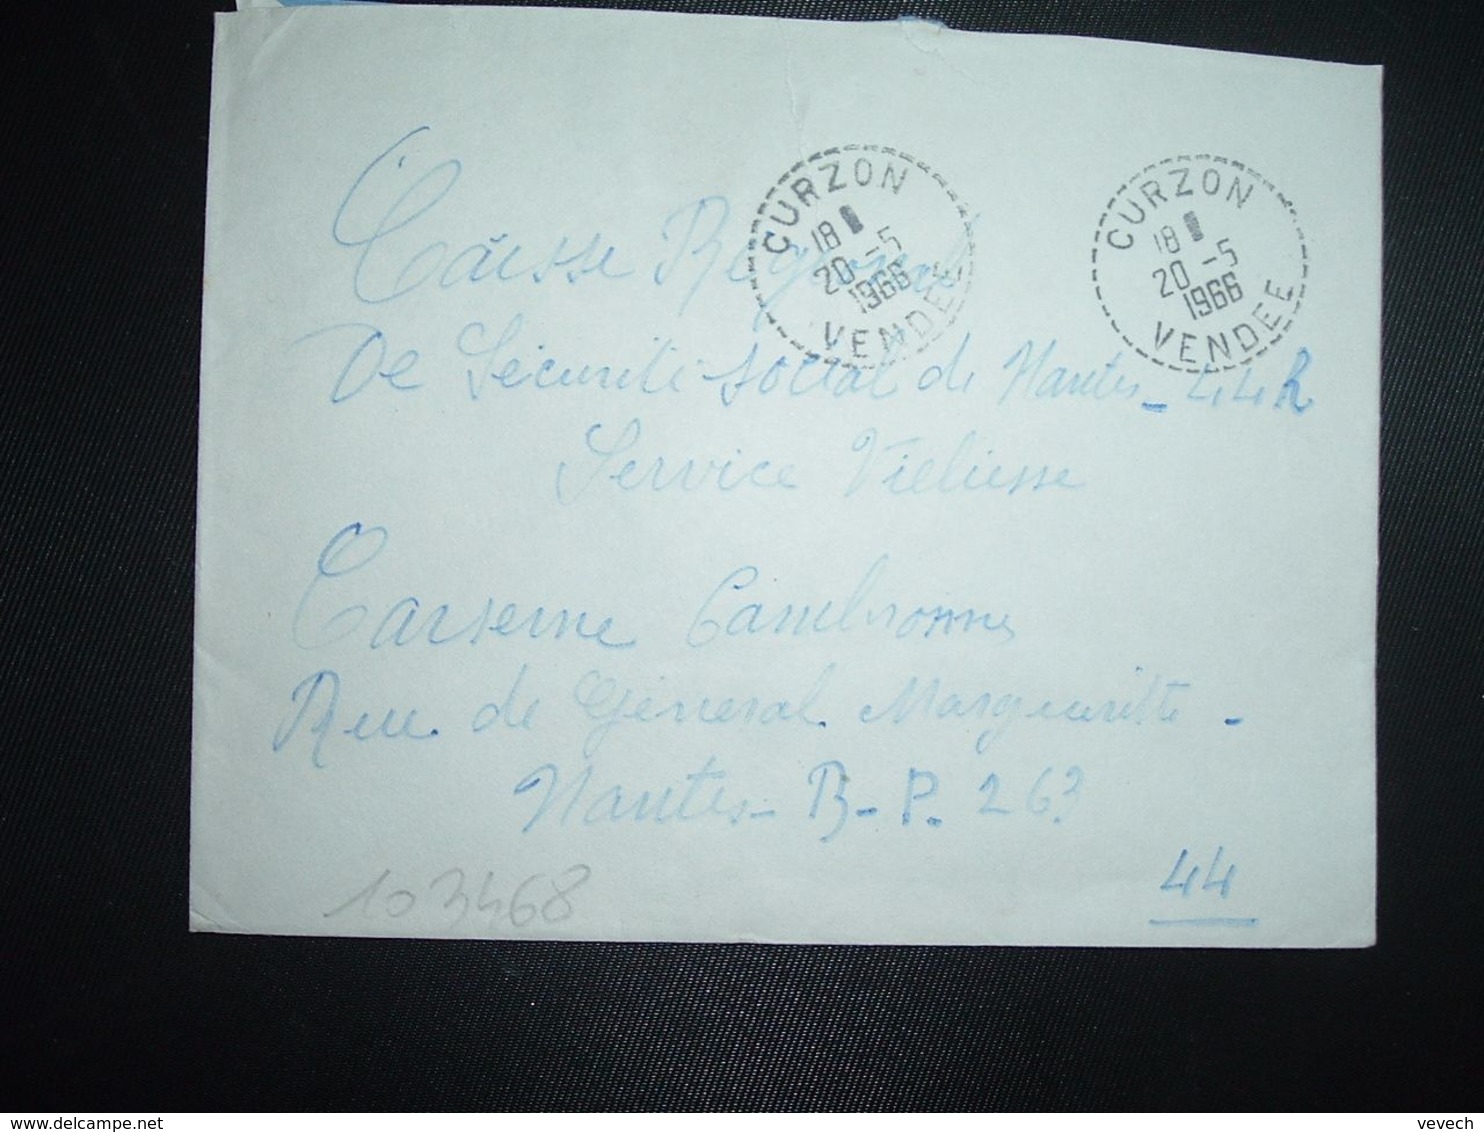 CURZON
18
20 -5
1966
VENDEE
CURZON
18
20 -5
1966
VENDEE
Caisse Régional
De Sécurité social de Nantes - 44 R
Service Vieliesse
Carserne Cambronne
Rue de Géneral Margueritte -
Nantes - B - P. 263
44
103468
delcampe.net
vevech